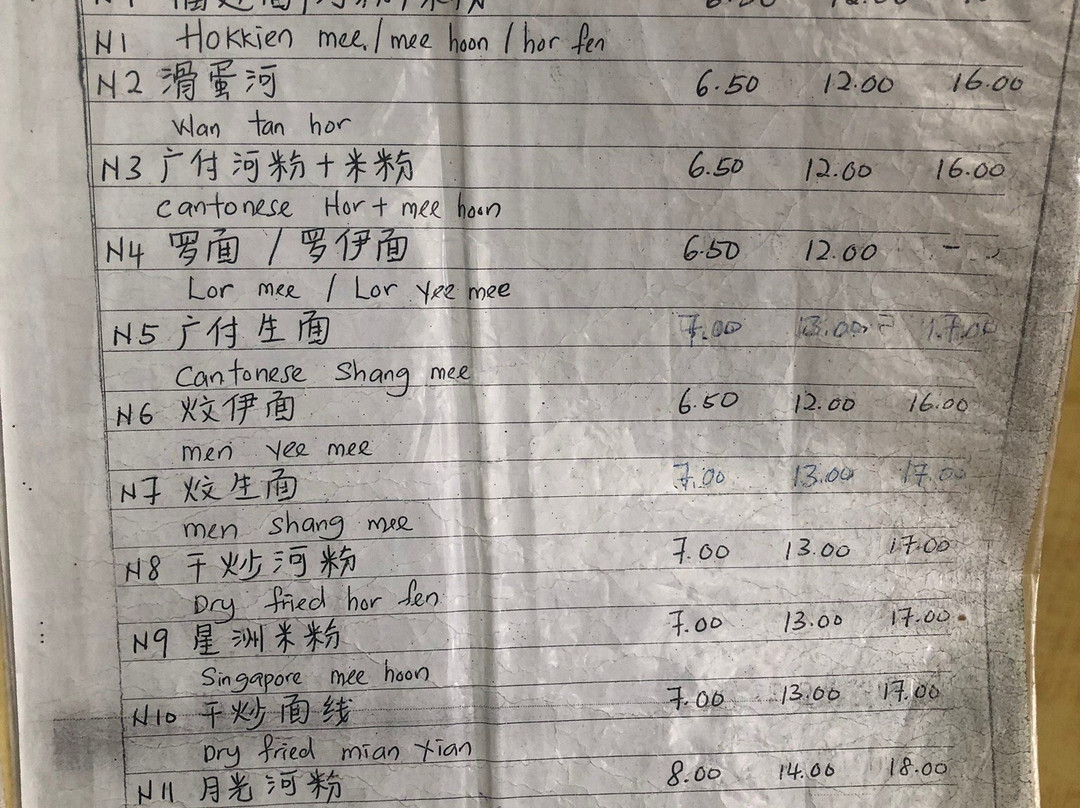 N1 Hokkien mee / mee hoon / hor fen
N2 滑蛋河 6.50 12.00 16.00
Wan tan hor
N3 广付河粉+米粉 6.50 12.00 16.00
Cantonese Hor + mee hoon
N4 罗面 / 罗伊面 6.50 12.00 -
Lor mee / Lor yee mee
N5 广付生面 7.00 13.00 17.00
Cantonese Shang mee
N6 炆伊面 6.50 12.00 16.00
men yee mee
N7 炆生面 7.00 13.00 17.00
men Shang mee
N8 干炒河粉 7.00 13.00 17.00
Dry fried hor fen
N9 星洲米粉 7.00 13.00 17.00
Singapore mee hoon
N10 干炒面线 7.00 13.00 17.00
Dry fried mian xian
N11 月光河粉 8.00 14.00 18.00